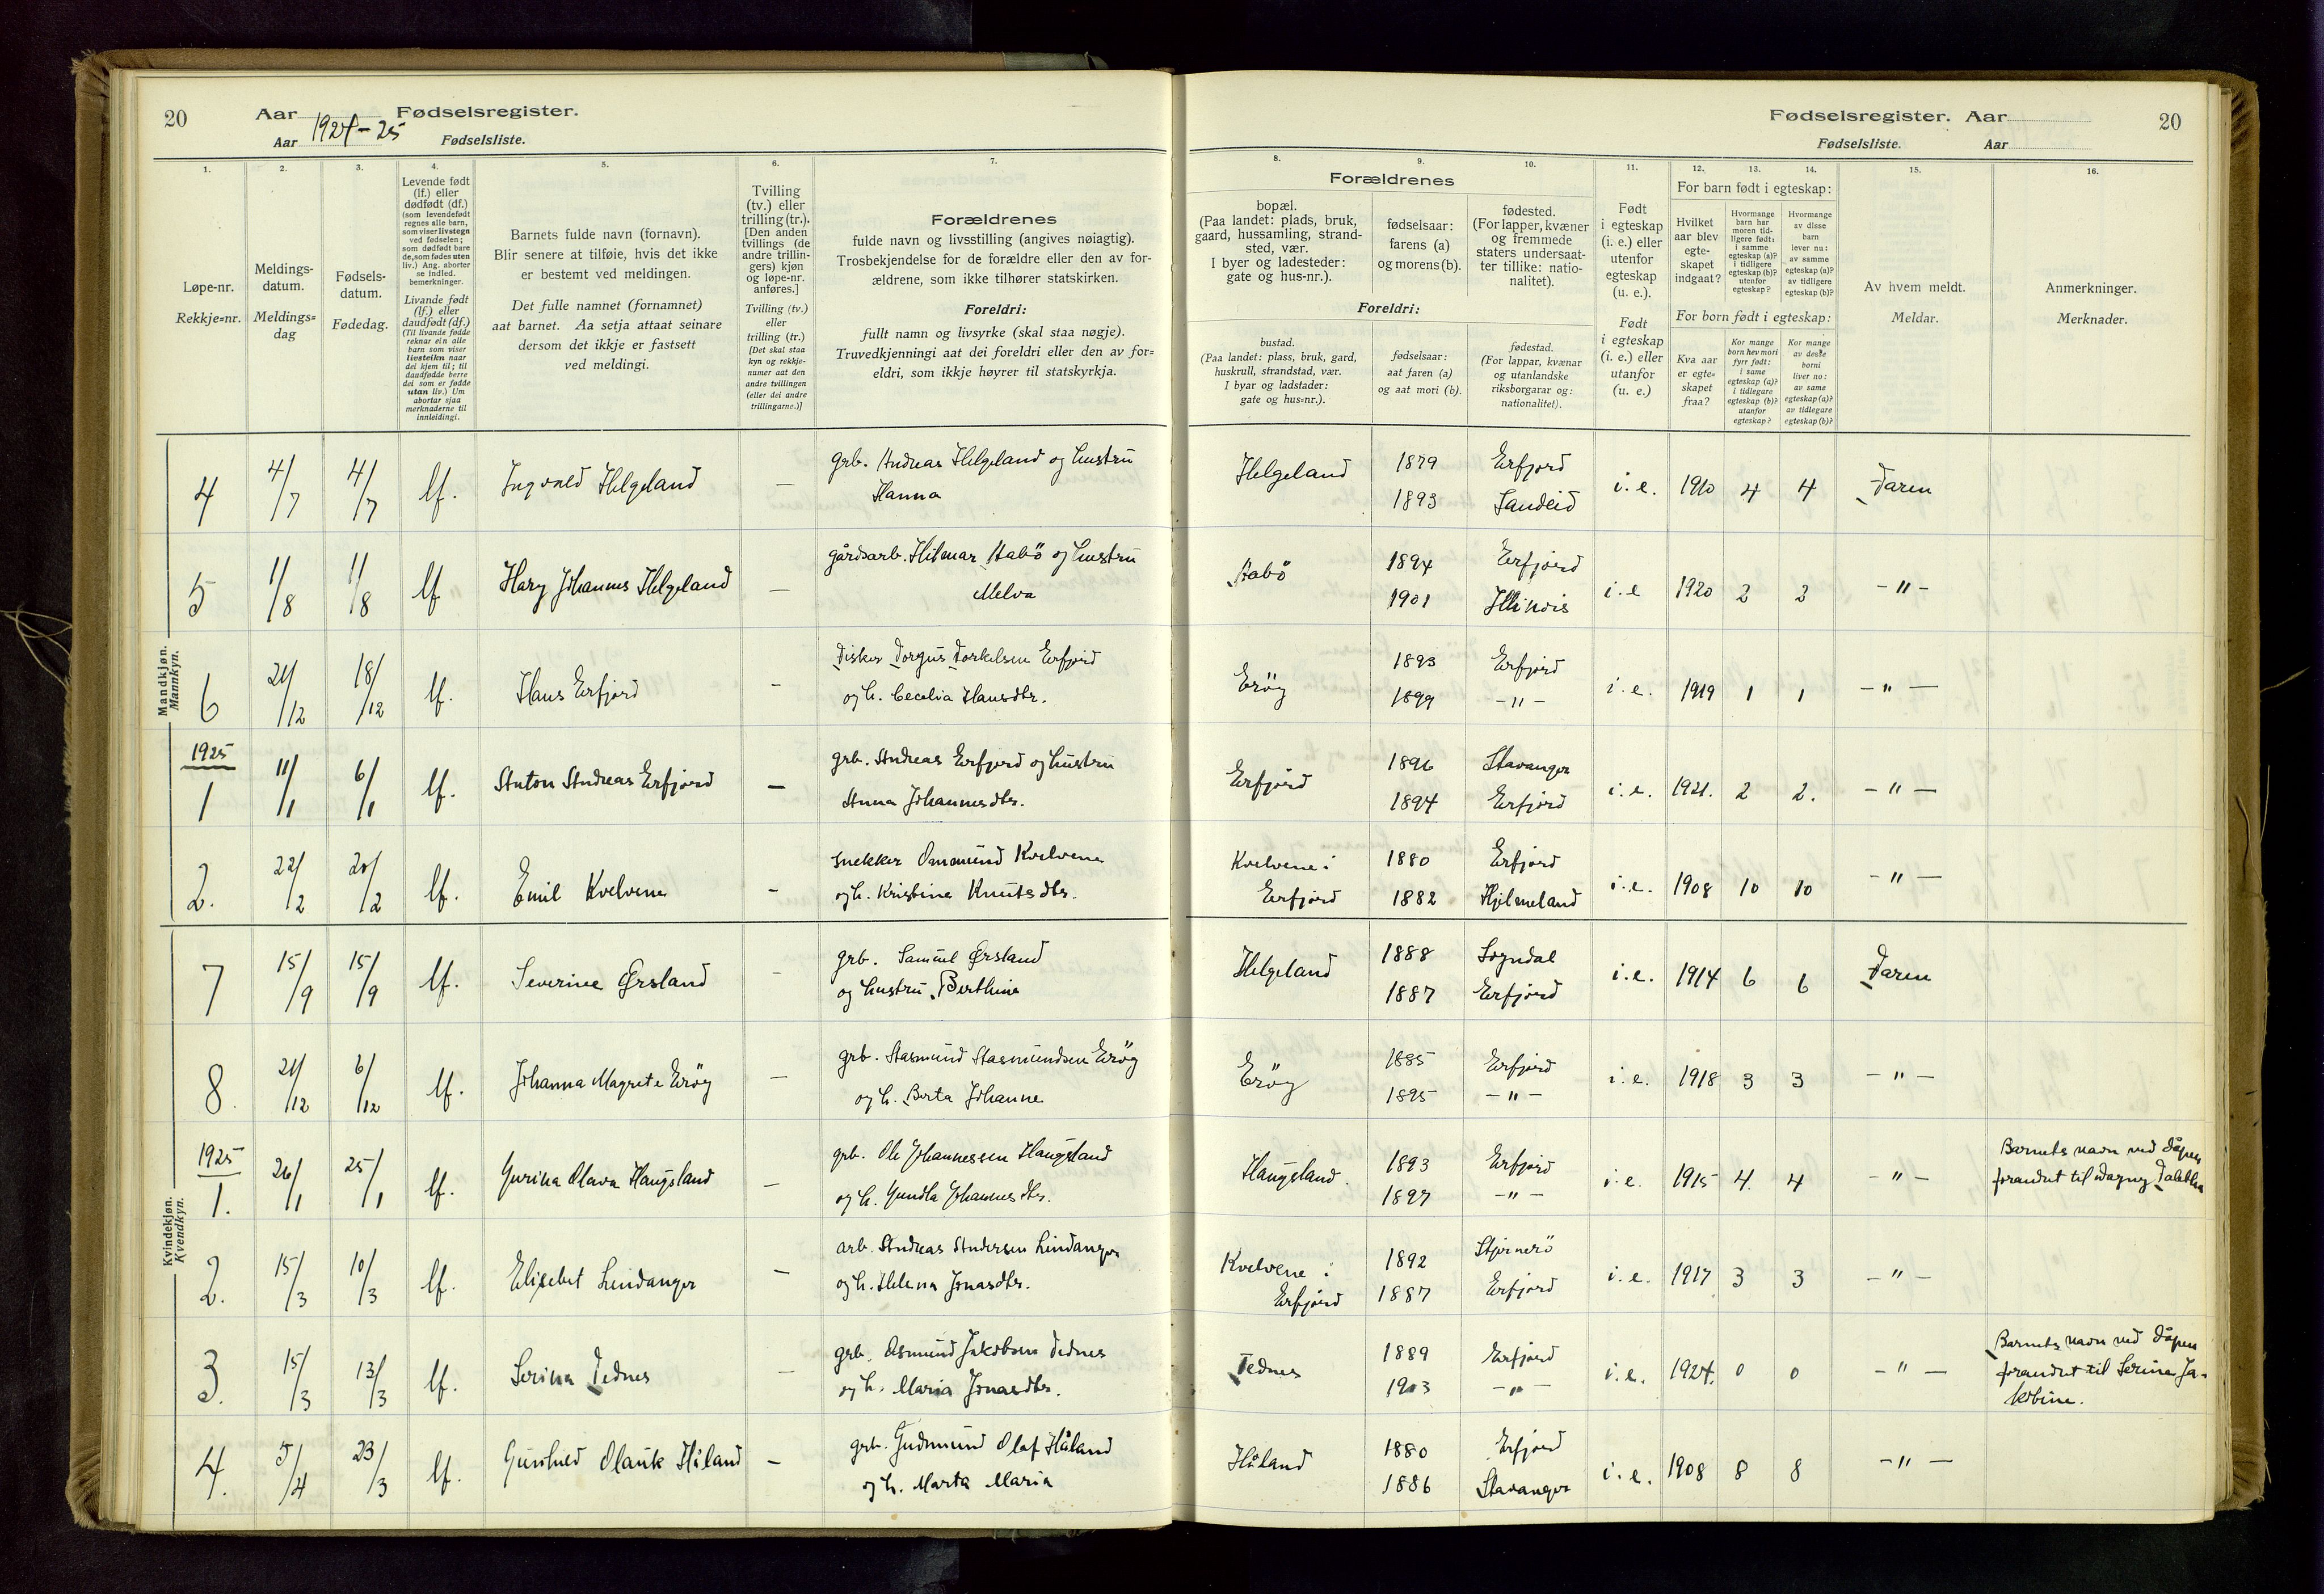 20
Aar 1924-25 Fødselsregister.
Aar Fødselsliste.
Fødselsregister. Aar
20
Fødselsliste. Aar
1. 2. 3. 4. 5. 6. 7.
Løpe-nr.
Rekkje-nr.
Meldings-
datum.
Meldings-
dag
Fødsels-
datum.
Fødedag.
Levende født
(lf.) eller
dødfødt (df.)
(som levendefødt
regnes alle barn,
som viser livstegn
ved fødselen;
som dødfødt bare
de, som fødes uten
liv.) Ang. aborter
se indled.
bemerkninger.
Livande født
(lf.) eller
daudfødt (df.)
(Til livande fødde
reknar ein alle
barn som viser
livsteikn naar
dei kjem til; til
daudfødde berre
dei som er fødde
utan liv.) Um
abortar sjaa
merknaderne til
innleidingi.
Barnets fulde navn (fornavn).
Blir senere at tilføie, hvis det ikke
er bestemt ved meldingen.
Det fulle namnet (fornamnet)
aat barnet. Aa setja attaat seinare
dersom det ikkje er fastsett
ved meldingi.
Tvilling
(tv.) eller
trilling (tr.).
[Den anden
tvillings (de
andre trillin-
gers) kjøn
og løpe-nr.
anføres.]
Tvilling (tv.)
eller
trilling (tr.)
[Det skal staa
kyn og rekkje-
numer aat den
andre tvillingen
(eller dei andre
trillingarne.)]
Forældrenes
fulde navn og livsstilling (angives nøiagtig).
Trosbekjendelse for de forældre eller den av for-
ældrene, som ikke tilhører statskirken.
Foreldri:
fullt namn og livsyrke (skal staa nøgje).
Truvedkjenningi aat dei foreldri eller den av for-
eldri, som ikkje høyrer til statskyrkja.
8. 9. 10. 11. 12. 13. 14. 15. 16.
Forældrenes
bopæl.
(Paa landet: plads, bruk,
gaard, hussamling, strand-
sted, vær.
I byer og ladesteder:
gate og hus-nr.).
fødselsaar:
farens (a)
og morens (b).
fødested.
(For lapper, kvæner
og fremmede
staters undersaat-
ter tillike: natio-
nalitet).
Foreldri:
bustad.
(Paa landet: plass, bruk, gard,
huskrull, strandstad, vær.
I byar og ladstader:
gate og hus-nr.).
fødselsaar:
aat faren (a)
og aat mori (b).
fødestad.
(For lappar, kvænar
og utanlandske
riksborgarar og:
nationalitet).
Født
i egteskap
(i. e.) eller
utenfor
egteskap
(u. e.).
Født
i egteskap
(i. e.) eller
utanfor
(u. e.)
For barn født i egteskap:
Hvilket
aar blev
egte-
skapet
indgaat?
Hvormange
barn har
moren tid-
ligere født:
i samme
egteskap (a)?
i tidligere
egteskap (b)?
utenfor
egteskap?
Hvormange
av disse
barn
lever nu:
av samme
egteskap (a)?
av tidligere
egteskap (b)?
For born født i egteskap:
Kva aar
er egte-
skapet
fraa?
Kor mange
born hev mori
fyrr født:
i same
egteskap (a)?
i tidlegare
egteskap (b)?
utanfor
egteskap?
Kor mange
av desse
borni
liver no:
av same
egteskap (a)?
av tidlegare
egteskap (b)?
Av hvem meldt.
Meldar.
Anmerkninger.
Merknader.
Mandkjøn.
Mannkyn.
4 4/7 4/7 lf. Ingvald Helgeland — grb. Andreas Helgeland og hustru
Hanna
Helgeland 1879 Erfjord
1893 Sandeid
i. e. 1910 4 4 Faren
5 11/8 11/8 lf Hary Johannes Helgeland — gårdsarb. Hilmar Aabö og hustru
Melva
Aabö 1894 Erfjord
1901 Illinois
i. e 1920 2 2 -"-
6 21/12 18/12 lf. Hans Erfjord — Fisker Torgus Torkelsen Erfjord
og h. Cecelia Hansdtr.
Eröy 1893 Erfjord
1899 -"-
i. e. 1919 1 1 -"-
1925
1 11/1 6/1 lf. Anton Andreas Erfjord — grb. Andreas Erfjord og hustru
Anna Johannesdtr.
Erfjord 1896 Stavanger
1894 Erfjord
i. e. 1921. 2 2. -"-
2. 22/2 20/2 lf. Emil Kvelvene — snekker Omømund Kvelvene
og h. Kristine Knutsdtr.
Kvelvene i 1880 Erfjord
Erfjord 1882 Hjelmeland
i. e. 1908 10 10 -"-
Kvindekjøn.
Kvendkyn.
7 15/9 15/9 lf. Severine Ørsland — grb. Samuel Ørsland
og hustru Berthine
Helgeland 1888 Sogndal
1887 Erfjord
i. e. 1914 6 6 Faren
8. 21/12 6/12 lf. Johanna Magrete Eröy — grb. Aasmund Aasmundsen Eröy
og h. Berta Johanne
Eröy 1885 Erfjord
1895 -"-
i. e. 1918 3 3 -"-
1925
1. 26/1 25/1 lf. Gurina Olava Haugsland — grb. Ole Johannessen Haugsland
og h. Gundla Johannesdtr.
Haugsland. 1893 Erfjord
1897 -"-
i. e. 1915 4. 4 -"- Barnets navn ved dåpen
forandret til Dagny Tabitha
2. 15/3 10/3 lf. Elisebet Lindanger — arb. Andreas Andersen Lindanger
og h. Helena Jonasdtr.
Kvelvene i 1892 Stjernerö
Erfjord 1887 Erfjord
i. e. 1917 3 3 -"-
3. 15/3 13/3 lf. Serina Tednes — grb. Asmund Jakobsen Tednes
og h. Maria Jonasdtr.
Tednes 1889 Erfjord
1903 -"-
i. e. 1924. 0 0 -"- Barnets navn ved dåpen
forandret til Serine Ja-
kobine.
4. 5/4 23/3 lf. Gunhild Olauk Håland — grb. Gudmund Olaf Håland
og h. Marta Maria
Håland 1880 Erfjord
1886 Stavanger
i. e. 1908 8 8 -"-